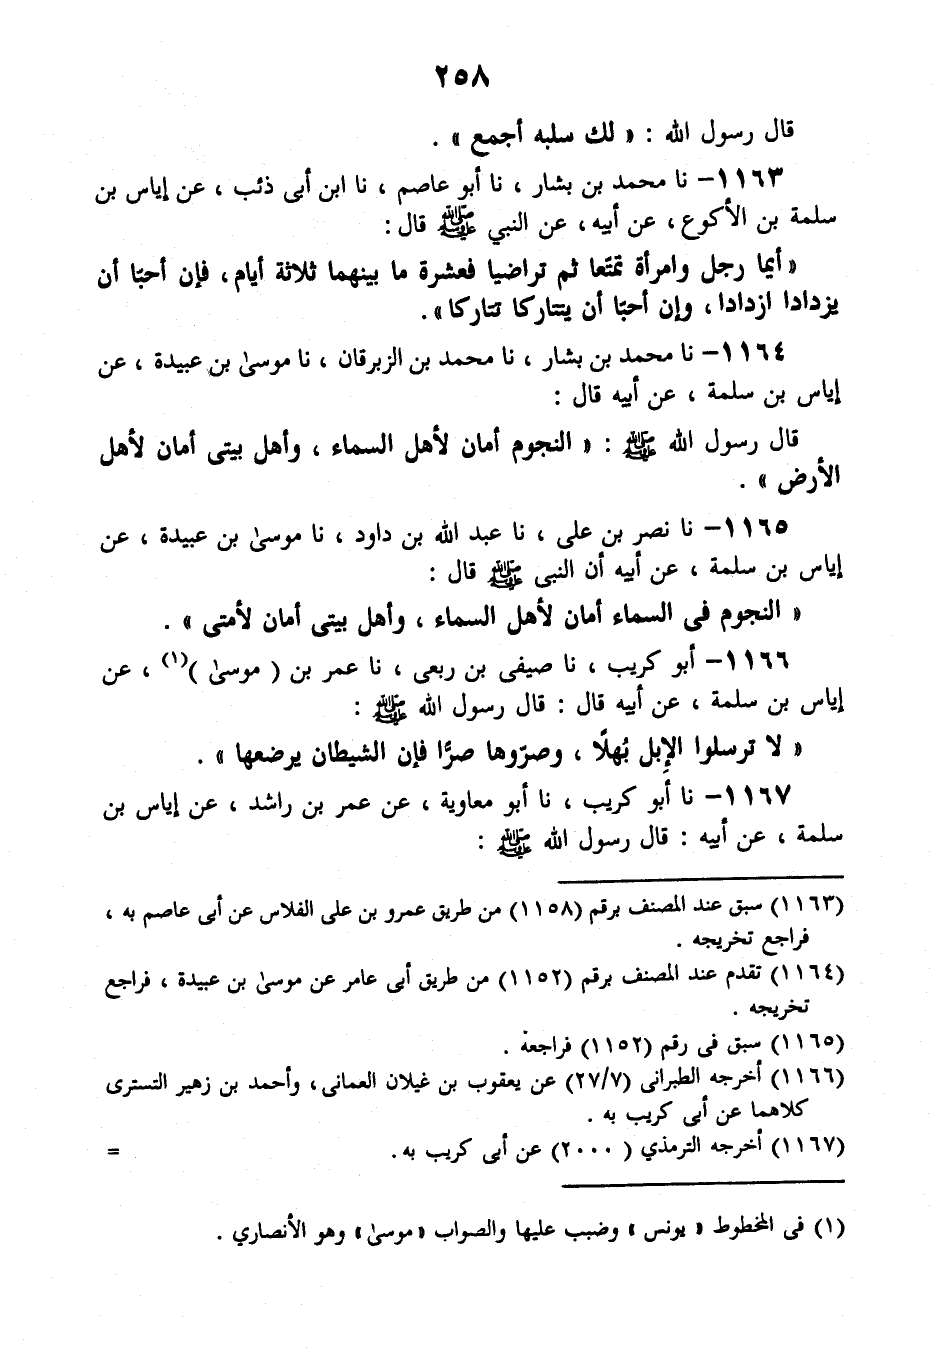 ٢٥٨
قال رسول الله : « لك سلبه أجمع » .
١١٦٣- نا محمد بن بشار ، نا أبو عاصم ، نا ابن أبى ذئب ، عن إياس بن
سلمة بن الأكوع ، عن أبيه ، عن النبي ﷺ قال :
« أيما رجل وامرأة تمتّعا ثم تراضيا فعشرة ما بينهما ثلاثة أيام ، فإن أحبّا أن
يزدادا ازدادا ، وإن أحبّا أن يتتاركا تتاركا » .
١١٦٤- نا محمد بن بشار ، نا محمد بن الزبرقان ، نا موسىٰ بن عبيدة ، عن
إياس بن سلمة ، عن أبيه قال :
قال رسول الله ﷺ : « النجوم أمان لأهل السماء ، وأهل بيتى أمان لأهل
الأرض » .
١١٦٥- نا نصر بن على ، نا عبد الله بن داود ، نا موسىٰ بن عبيدة ، عن
إياس بن سلمة ، عن أبيه أن النبى ﷺ قال :
« النجوم فى السماء أمان لأهل السماء ، وأهل بيتى أمان لأمتى » .
١١٦٦- أبو كريب ، نا صيفى بن ربعى ، نا عمر بن ( موسىٰ )(١) ، عن
إياس بن سلمة ، عن أبيه قال : قال رسول الله ﷺ :
« لا ترسلوا الإِبل بُهلًا ، وصرّوها صرًّا فإن الشيطان يرضعها » .
١١٦٧- نا أبو كريب ، نا أبو معاوية ، عن عمر بن راشد ، عن إياس بن
سلمة ، عن أبيه : قال رسول الله ﷺ :
(١١٦٣) سبق عند المصنف برقم (١١٥٨) من طريق عمرو بن على الفلاس عن أبى عاصم به ،
فراجع تخريجه .
(١١٦٤) تقدم عند المصنف برقم (١١٥٢) من طريق أبى عامر عن موسىٰ بن عبيدة ، فراجع
تخريجه .
(١١٦٥) سبق فى رقم (١١٥٢) فراجعه .
(١١٦٦) أخرجه الطبرانى (٢٧/٧) عن يعقوب بن غيلان العمانى ، وأحمد بن زهير التسترى
كلاهما عن أبى كريب به .
(١١٦٧) أخرجه الترمذي ( ٢٠٠٠) عن أبى كريب به . =
(١) فى المخطوط « يونس » وضبب عليها والصواب «موسىٰ» وهو الأنصاري .